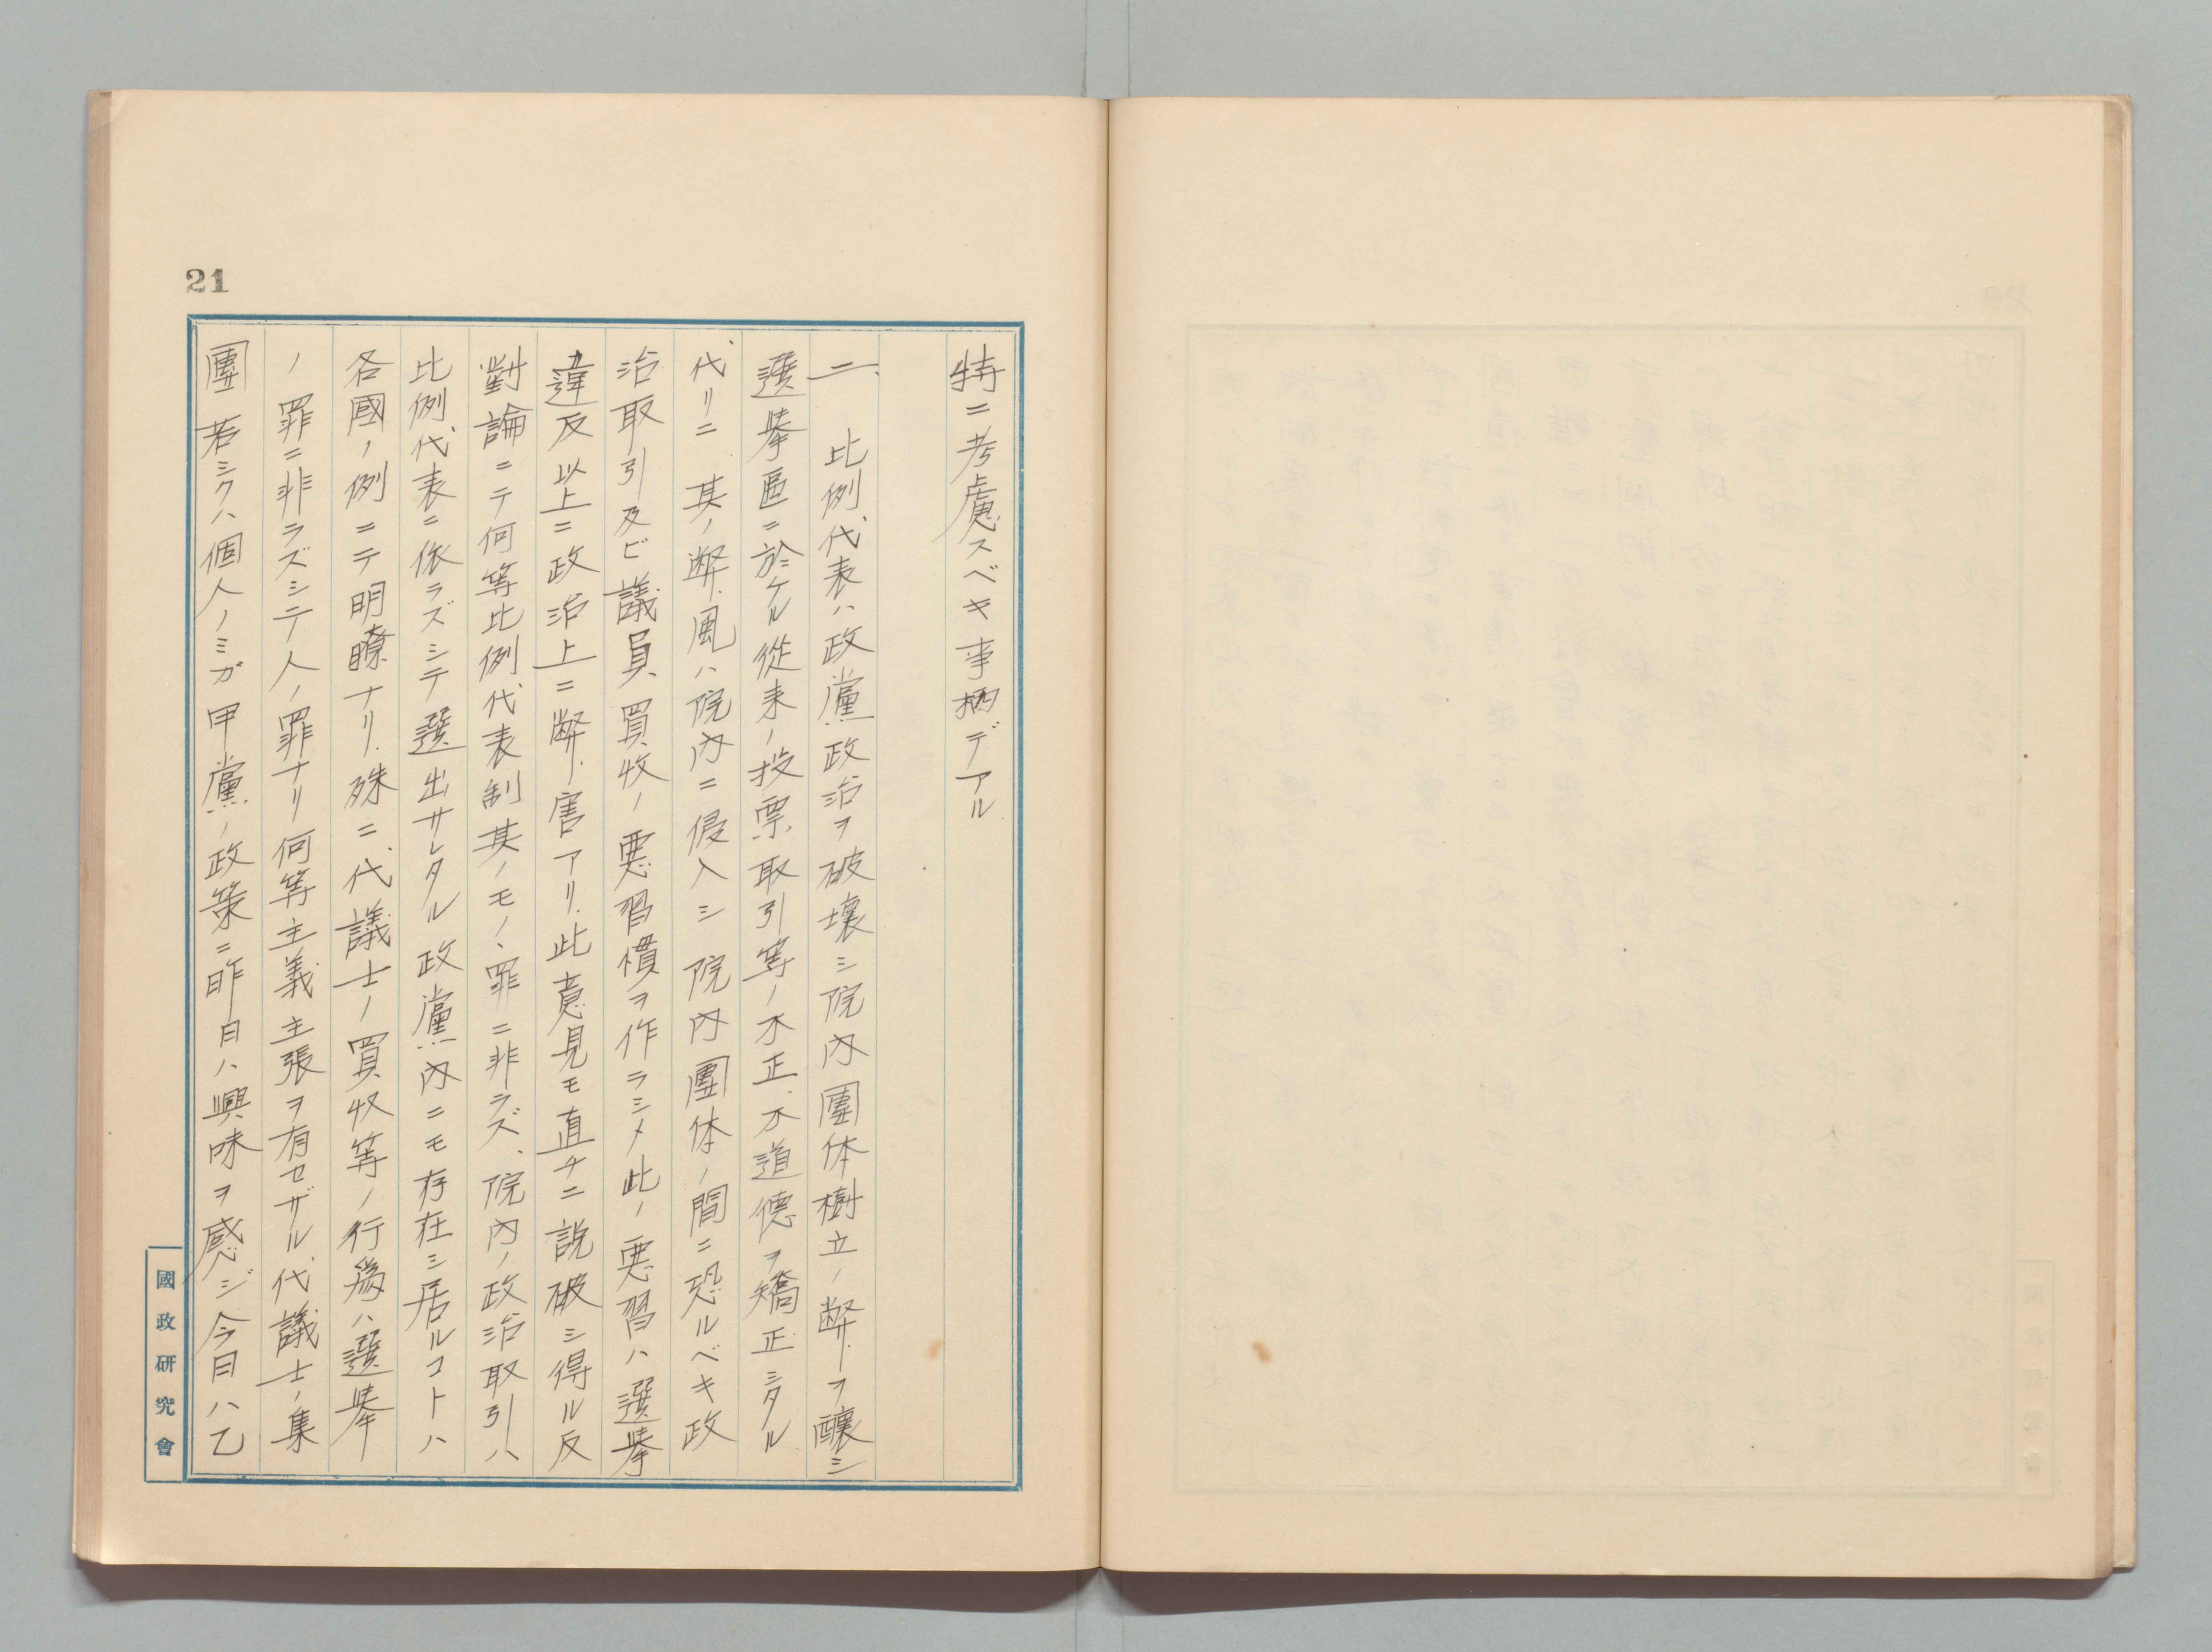 21
特ニ考慮スベキ事柄デアル
二、比例代表ハ政黨政治ヲ破壞シ院内團体樹立ノ弊ヲ釀シ
選擧區ニ於ケル從来ノ投票取引等ノ不正不道德ヲ矯正シタル
代リニ其ノ弊風ハ院内ニ侵入シ院内團体ノ間ニ恐ルベキ政
治取引及ビ議員買收ノ悪習慣ヲ作ラシメ此ノ悪習ハ選擧
違反以上ニ政治上ニ弊害アリ此意見モ直チニ説破シ得ル反
對論ニテ何等比例代表制其ノモノヽ罪ニ非ラズ、院内ノ政治取引ハ
比例代表ニ依ラズシテ選出サレタル政黨内ニモ存在シ居ルコトハ
各國ノ例ニテ明瞭ナリ殊ニ代議士ノ買収等ノ行爲ハ選擧
ノ罪ニ非ラズシテ人ノ罪ナリ何等主義主張ヲ有セザル代議士ノ集
團若シクハ個人ノミガ甲黨ノ政策ニ昨日ハ興味ヲ感ジ今日ハ乙
國政研究會